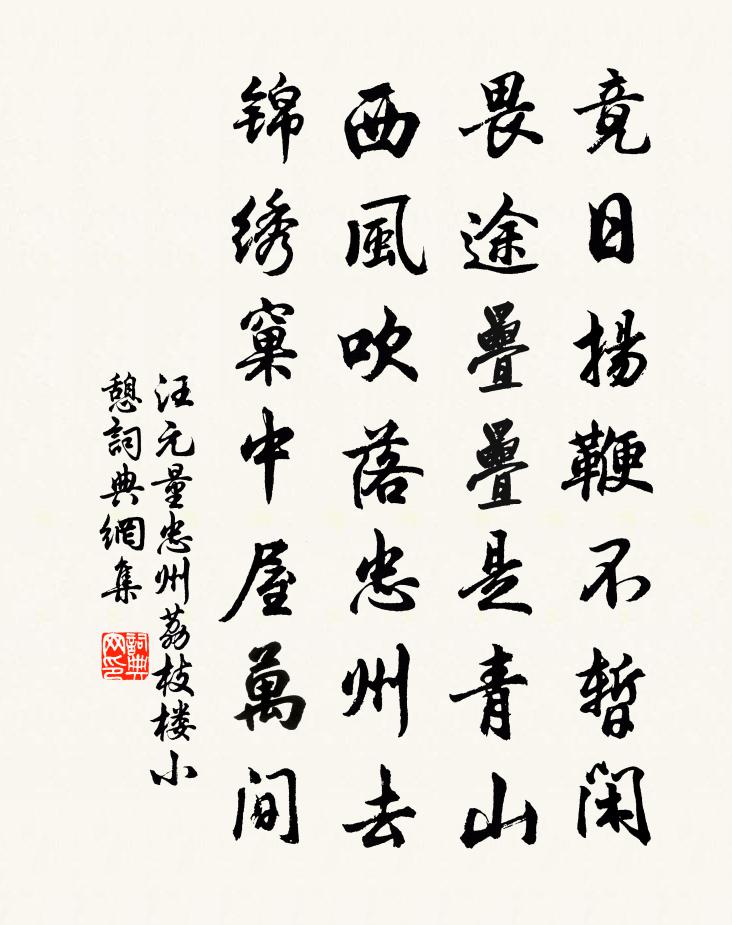 竟日揚鞭不暫闲
畏途疊疊是青山
西風吹落忠州去
锦绣窠中屋萬间
汪元量忠州荔枝楼小
憩詞典網集
詞典
网印